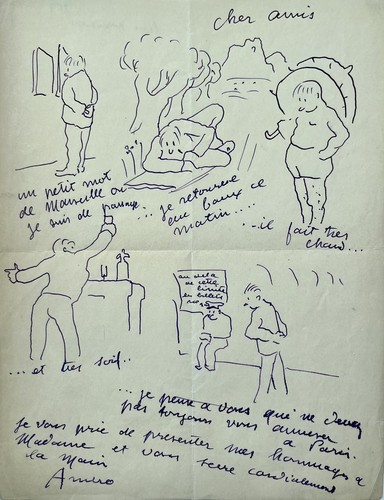 cher amis
un petit mot
de Marseille où
je suis de passage
... je retourne
aux baux ce
matin....
...il fait très
chaud...
...et très soif..
au delà
de cette
limite
les billets
...je pense a vous qui ne devez
pas toujours vous amuser
a Paris.
Je vous prie de présenter mes hommages a
Madame et vous serre cordialement
la main